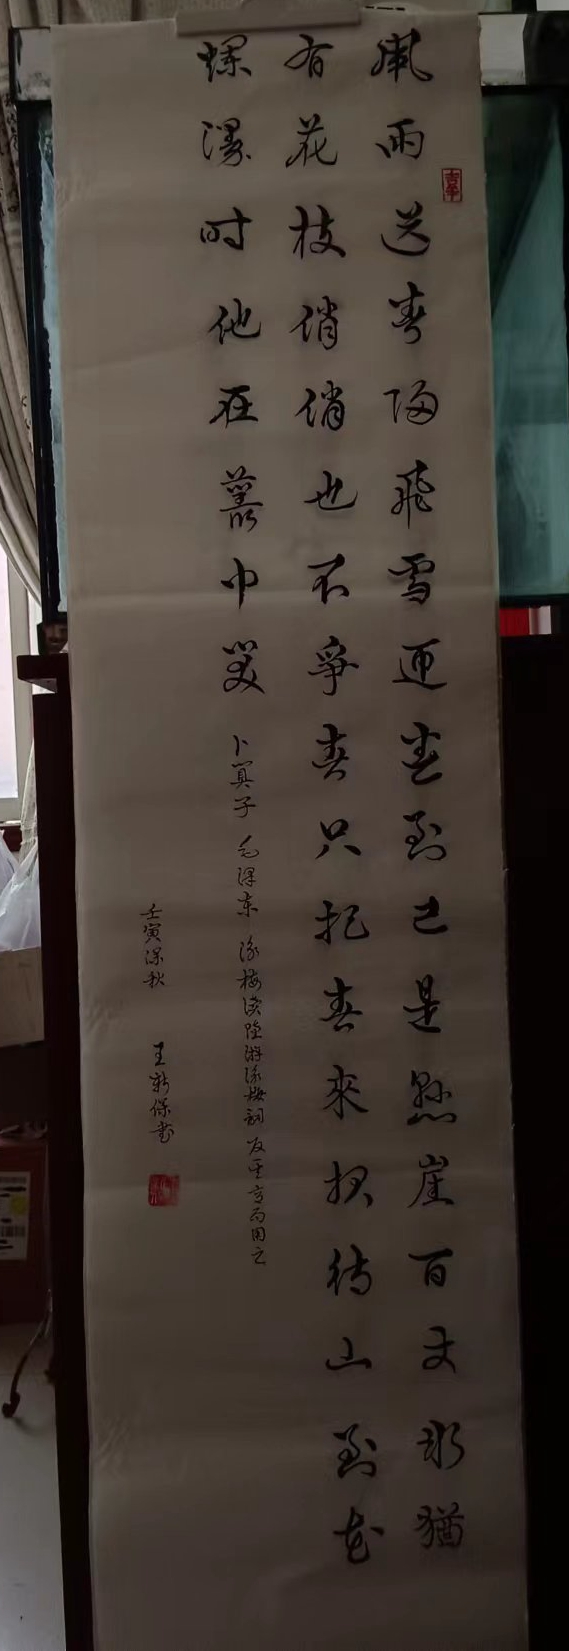 風雨送春归飛雪迎春到已是懸崖百丈冰猶
有花枝俏俏也不爭春只把春來报待山到花
爛漫时他在叢中笑
卜算子 毛泽东 咏梅读陸游咏梅詞 反其意而用之
壬寅深秋 王新保書